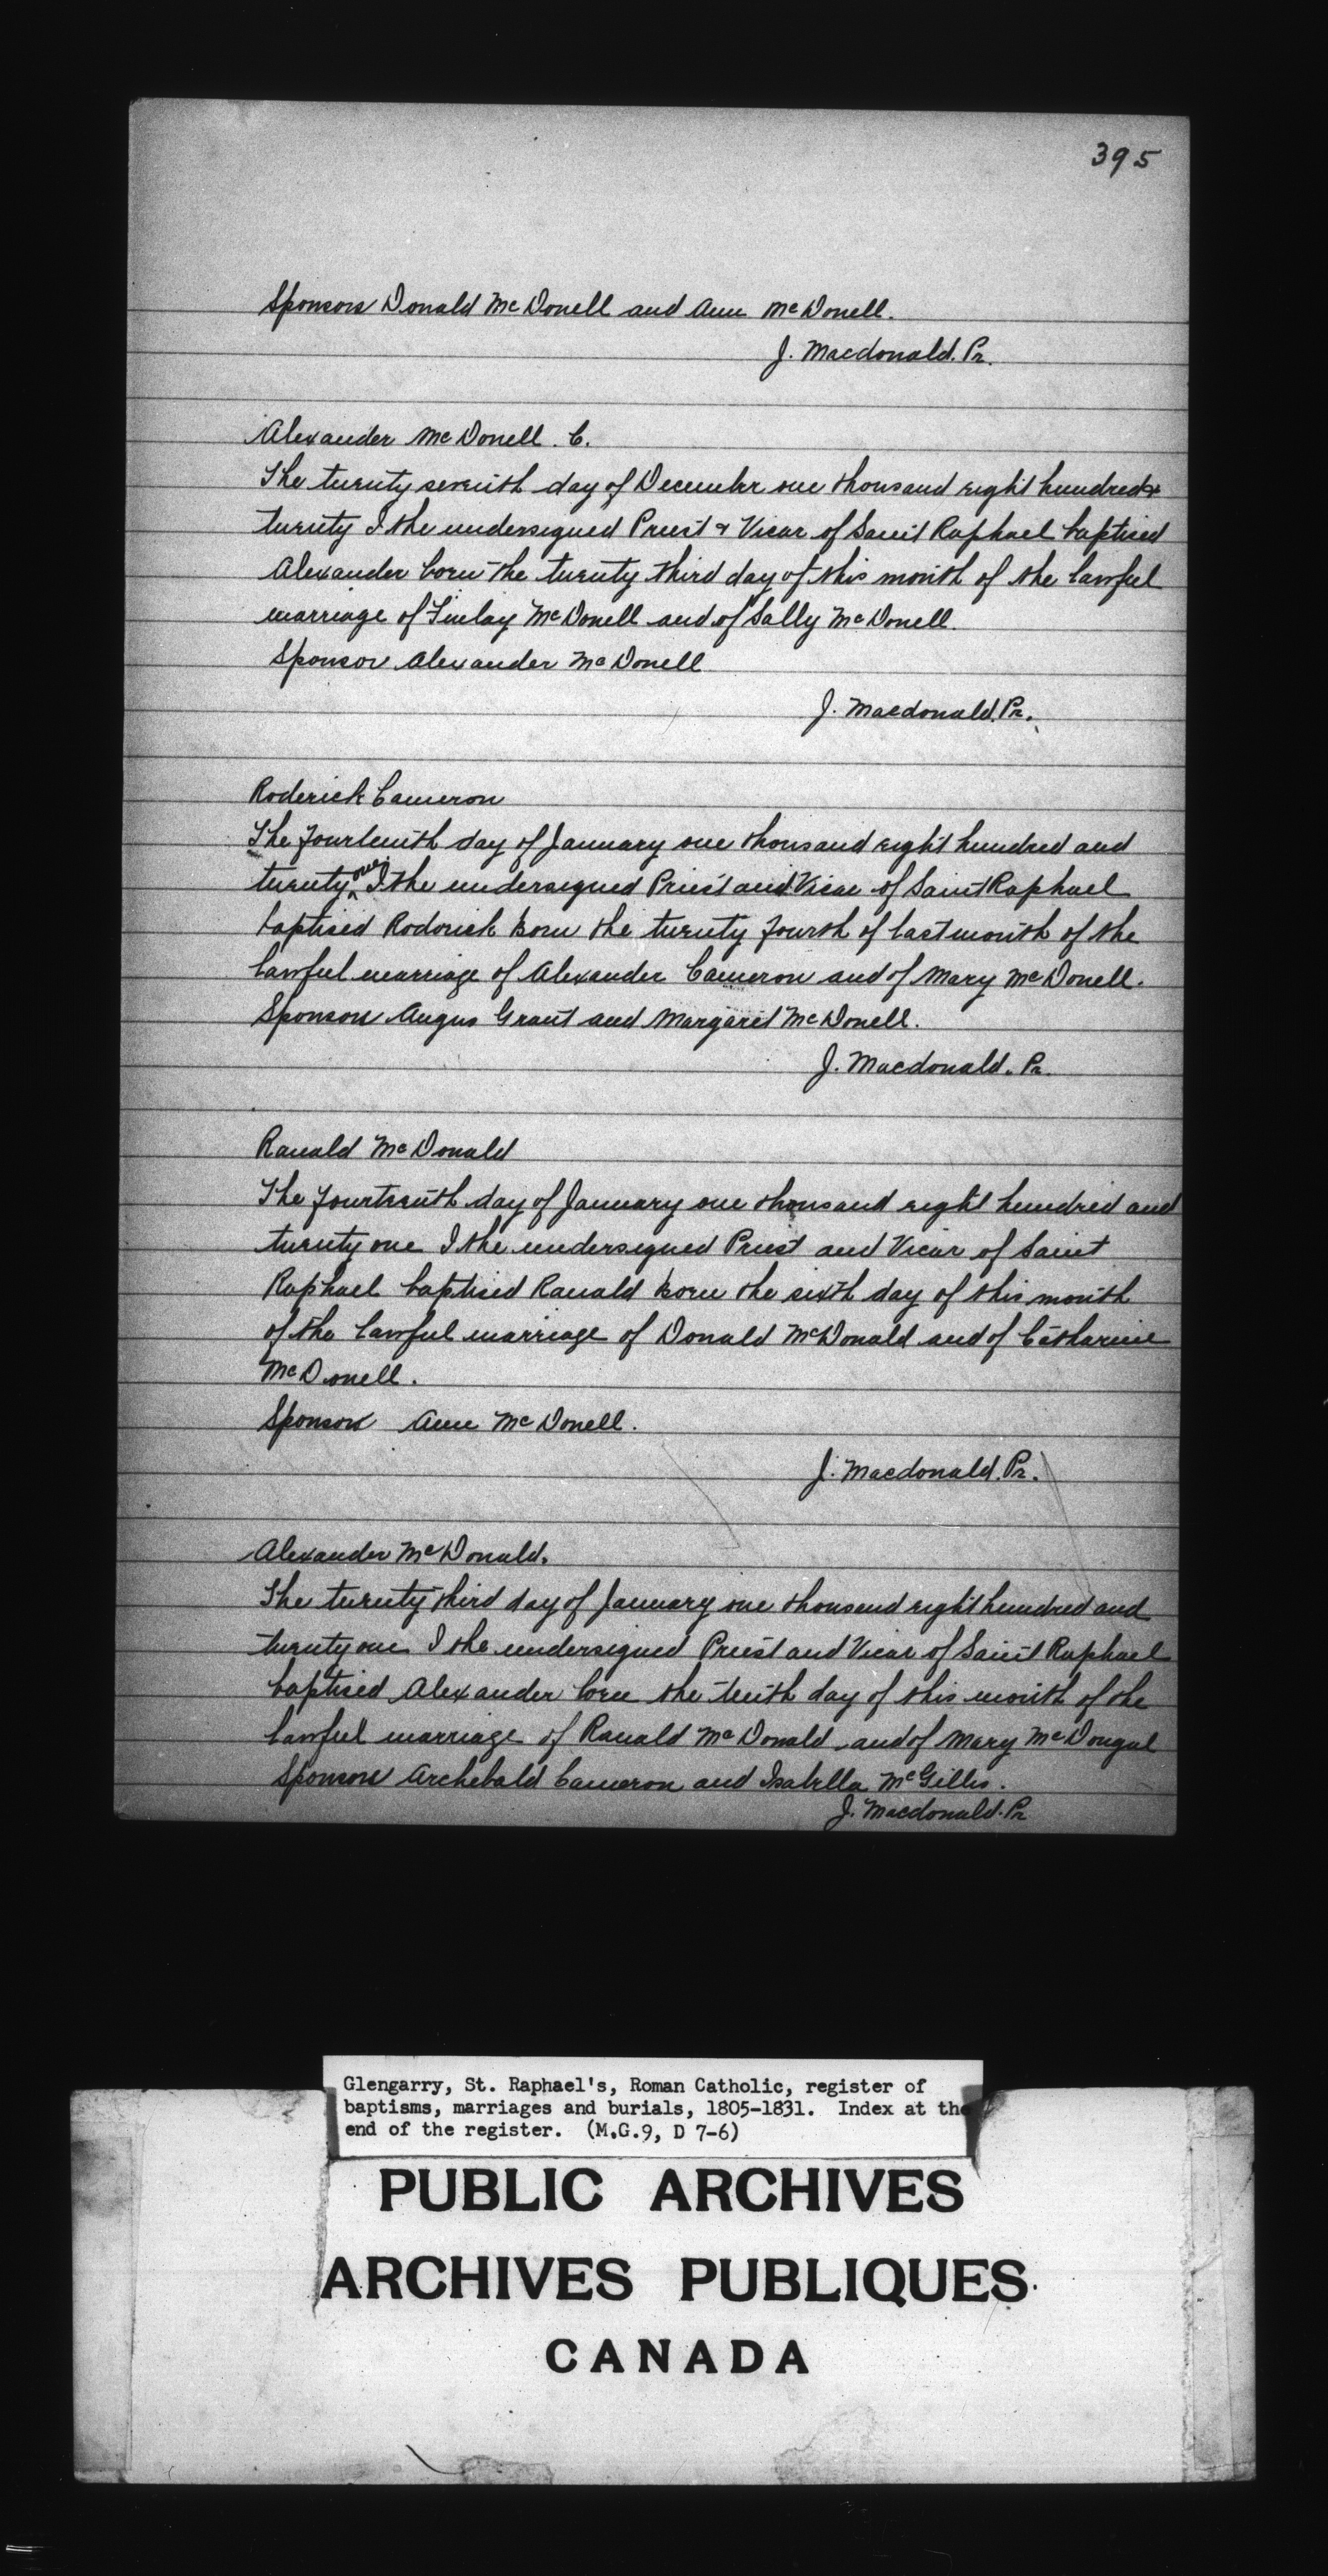 395
Sponsors Donald McDonell and Ann McDonell.
J. Macdonald. Pr.
Alexander McDonell. C.
The twenty seventh day of December one thousand eight hundred &
twenty I the undersigned Priest & Vicar of Saint Raphael baptised
Alexander born the twenty third day of this month of the lawful
marriage of Finlay McDonell and of Sally McDonell.
Sponsor Alexander McDonell
J. Macdonald. Pr.
Roderick Cameron
The fourteenth day of January one thousand eight hundred and
twenty one I the undersigned Priest and Vicar of Saint Raphael
baptised Roderick born the twenty fourth of last month of the
lawful marriage of Alexander Cameron and of Mary McDonell.
Sponsors Angus Grant and Margaret McDonell.
J. Macdonald. Pr.
Ranald McDonald
The fourteenth day of January one thousand eight hundred and
twenty one I the undersigned Priest and Vicar of Saint
Raphael baptised Ranald born the sixth day of this month
of the lawful marriage of Donald McDonald and of Catharine
McDonell.
Sponsor Ann McDonell.
J. Macdonald. Pr.
Alexander McDonald.
The twenty third day of January one thousand eight hundred and
twenty one I the undersigned Priest and Vicar of Saint Raphael
baptised Alexander born the tenth day of this month of the
lawful marriage of Ranald McDonald and of Mary McDougal
Sponsors Archebald Cameron and Isabella McGillis.
J. Macdonald. Pr
Glengarry, St. Raphael's, Roman Catholic, register of
baptisms, marriages and burials, 1805-1831. Index at the
end of the register. (M.G.9, D 7-6)
PUBLIC ARCHIVES
ARCHIVES PUBLIQUES
CANADA